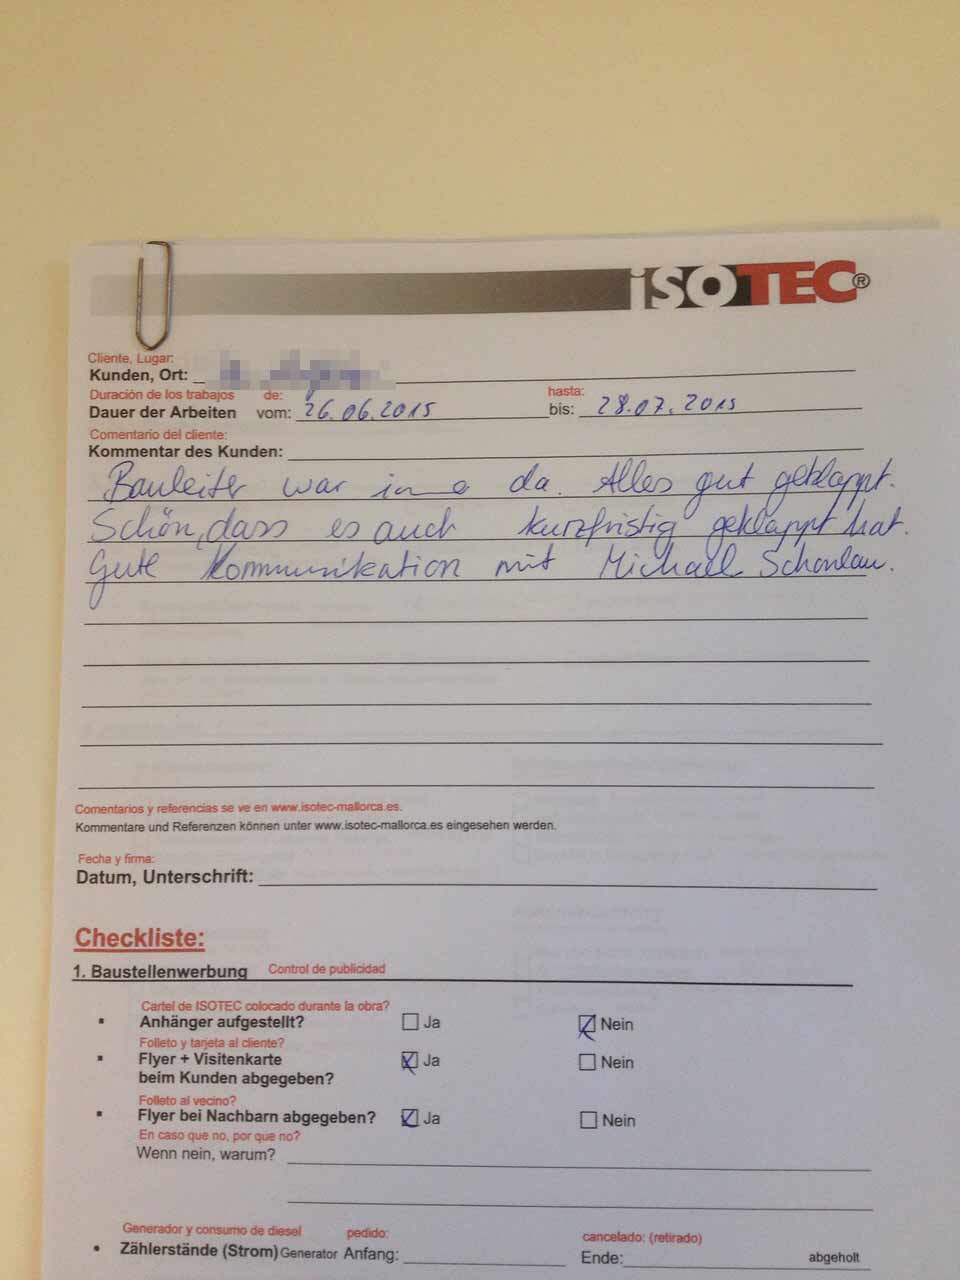 iSOTEC®
Cliente, Lugar:
Kunden, Ort:
Duración de los trabajos de: hasta:
Dauer der Arbeiten vom: 26.06.2015 bis: 28.07.2015
Comentario del cliente:
Kommentar des Kunden:
Bauleiter war da. Alles gut geklappt.
Schön, dass es auch kurzfristig geklappt hat.
Gute Kommunikation mit Michael Schonlau.
Comentarios y referencias se ve en www.isotec-mallorca.es.
Kommentare und Referenzen können unter www.isotec-mallorca.es eingesehen werden.
Fecha y firma:
Datum, Unterschrift:
Checkliste:
1. Baustellenwerbung Control de publicidad
Cartel de ISOTEC colocado durante la obra?
Anhänger aufgestellt? Ja Nein
Folleto y tarjeta al cliente?
Flyer + Visitenkarte Ja Nein
beim Kunden abgegeben?
Folleto al vecino?
Flyer bei Nachbarn abgegeben? Ja Nein
En caso que no, por que no?
Wenn nein, warum?
Generador y consumo de diesel pedido: cancelado: (retirado)
Zählerstände (Strom) Generator Anfang: Ende: abgeholt